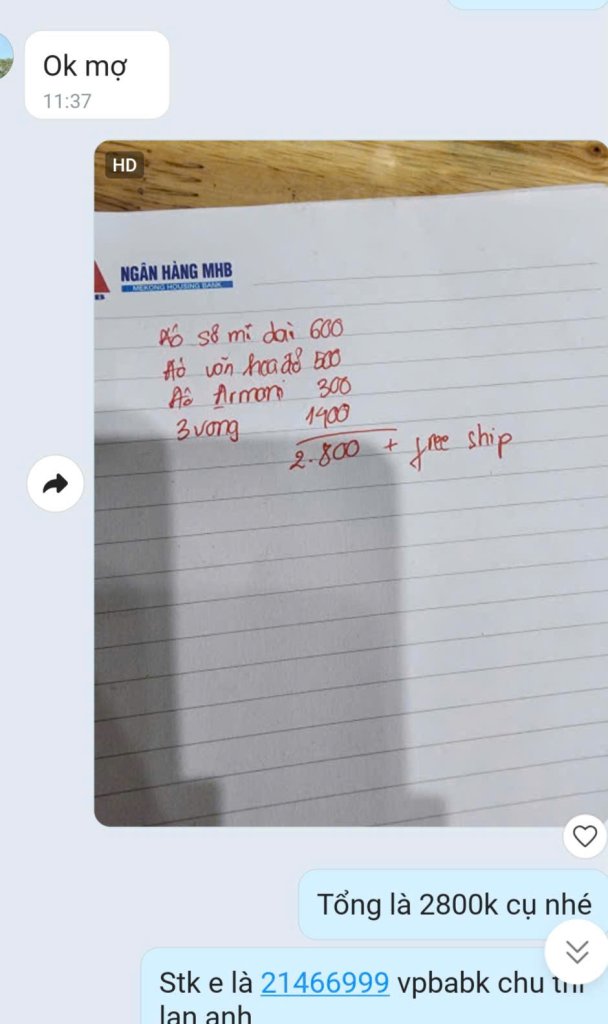 Ok mợ
11:37
HD
NGÂN HÀNG MHB
MEKONG HOUSING BANK
B
Áo sơ mi dài 600
Áo voan hoa đỏ 500
Áo Armani 300
3 vong 1400
2.800 + free ship
Tổng là 2800k cụ nhé
Stk e là 21466999 vpbabk chu thi
lan anh